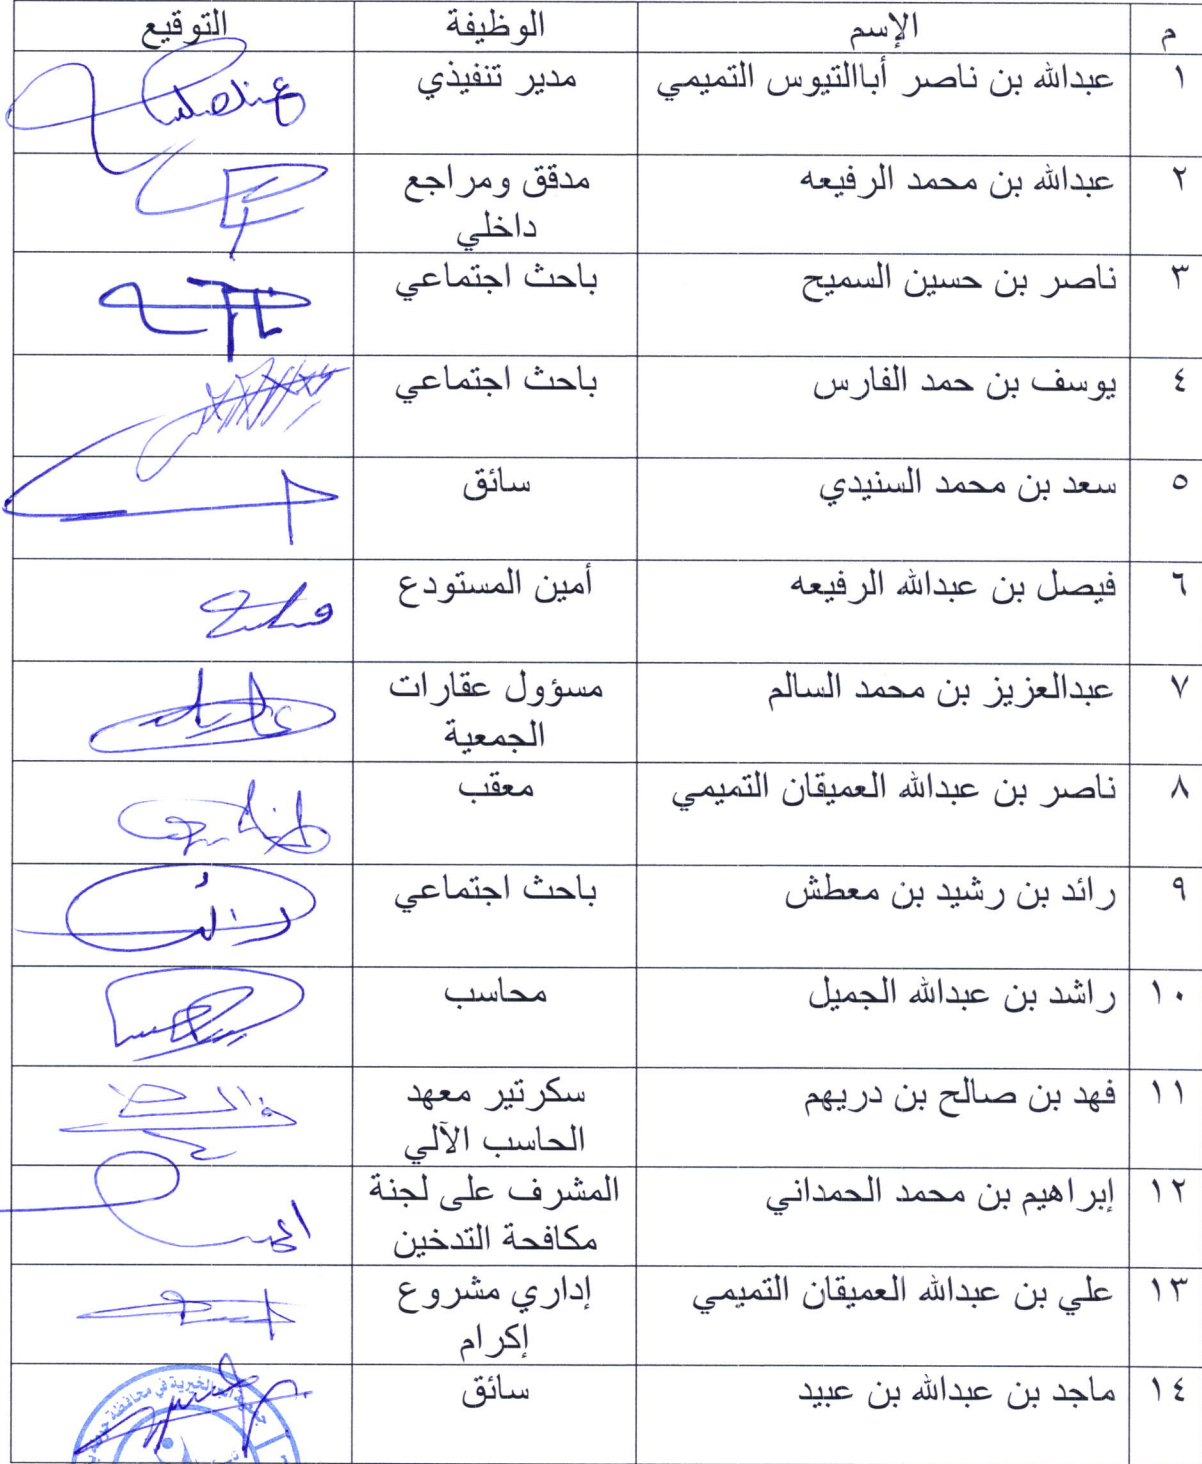 م الإسم الوظيفة التوقيع
١ عبدالله بن ناصر أباالتيوس التميمي مدير تنفيذي
٢ عبدالله بن محمد الرفيعه مدقق ومراجع
داخلي
٣ ناصر بن حسين السميح باحث اجتماعي
٤ يوسف بن حمد الفارس باحث اجتماعي
٥ سعد بن محمد السنيدي سائق
٦ فيصل بن عبدالله الرفيعه أمين المستودع
٧ عبدالعزيز بن محمد السالم مسؤول عقارات
الجمعية
٨ ناصر بن عبدالله العميقان التميمي معقب
٩ رائد بن رشيد بن معطش باحث اجتماعي
١٠ راشد بن عبدالله الجميل محاسب
١١ فهد بن صالح بن دريهم سكرتير معهد
الحاسب الآلي
١٢ إبراهيم بن محمد الحمداني المشرف على لجنة
مكافحة التدخين
١٣ علي بن عبدالله العميقان التميمي إداري مشروع
إكرام
١٤ ماجد بن عبدالله بن عبيد سائق
الخيرية في محافظة